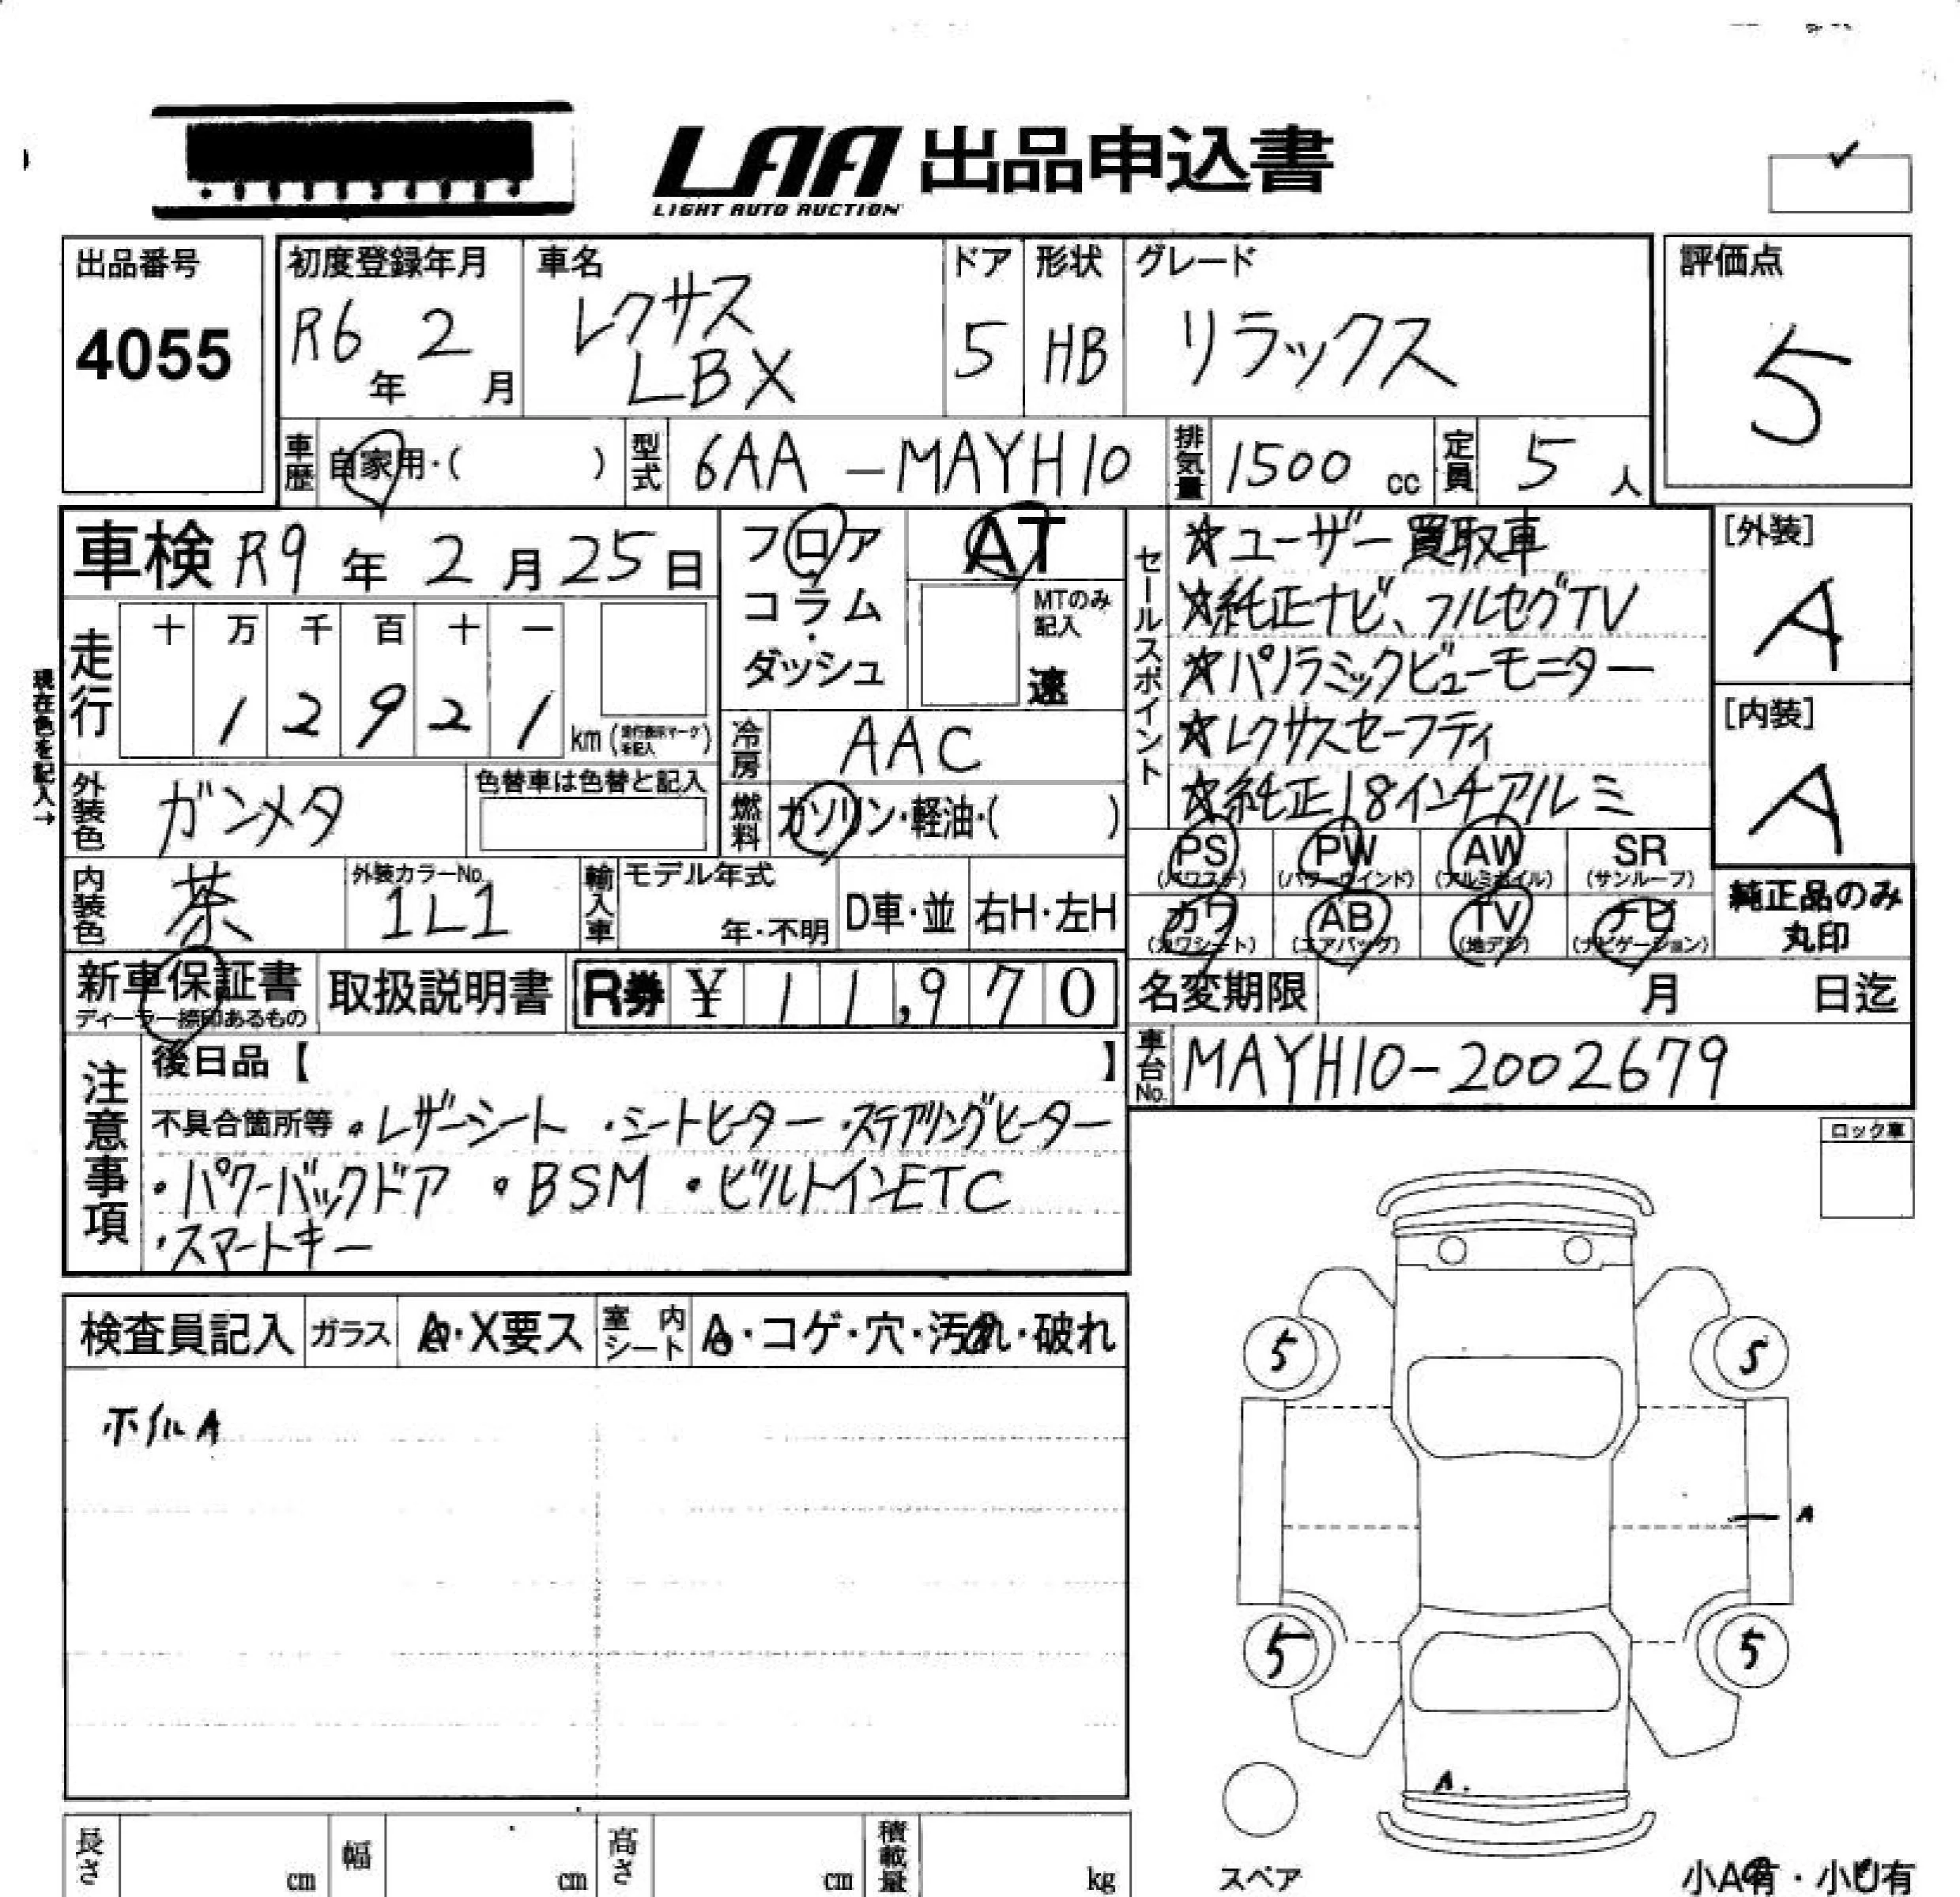 LAA 出品申込書
LIGHT AUTO AUCTION
出品番号
4055
初度登録年月
R6年 2月
車名
レクサス
LBX
ドア
5
形状
HB
グレード
リラックス
評価点
5
車歴 自家用・( )
型式 6AA-MAYH10
排気量 1500 cc
定員 5 人
車検 R9 年 2 月 25 日
フロア
コラム
・
ダッシュ
AT
MTのみ
記入
速
セールスポイント
☆ユーザー買取車
☆純正ナビ、フルセグTV
☆パノラミックビューモニター
☆レクサスセーフティ
☆純正18インチアルミ
[外装]
A
[内装]
A
現在色を記入→
走行
十 万 千 百 十 一
1 2 9 2 1 km (走行表示マークを記入)
冷房 AAC
外装色 ガンメタ
色替車は色替と記入
燃料 ガソリン・軽油・( )
PS PW AW SR
(パワステ) (パワーウインド) (アルミホイル) (サンルーフ)
カワ AB TV ナビ
(カワシート) (エアバッグ) (地デジ) (ナビゲーション)
純正品のみ
丸印
内装色 茶
外装カラーNo.
1L1
輸入車
モデル年式
年・不明
D車・並
右H・左H
新車保証書
ディーラー捺印あるもの
取扱説明書
R券 ¥ 11,970
名変期限 月 日迄
車台No. MAYH10-2002679
注意事項
後日品【 】
不具合箇所等 ・レザーシート ・シートヒーター ・ステアリングヒーター
・パワーバックドア ・BSM ・ビルトインETC
・スマートキー
ロック車
検査員記入
ガラス A・X要ス
室内シート A・コゲ・穴・汚れ・破れ
ホイルA
5 5
A
5 5
A
スペア
小A有・小U有
長さ cm
幅 cm
高さ cm
積載量 kg